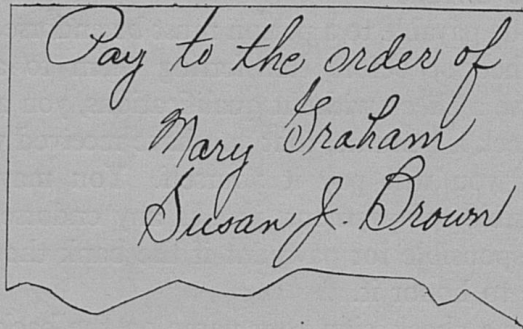 Pay to the order of
Mary Graham
Susan J. Brown